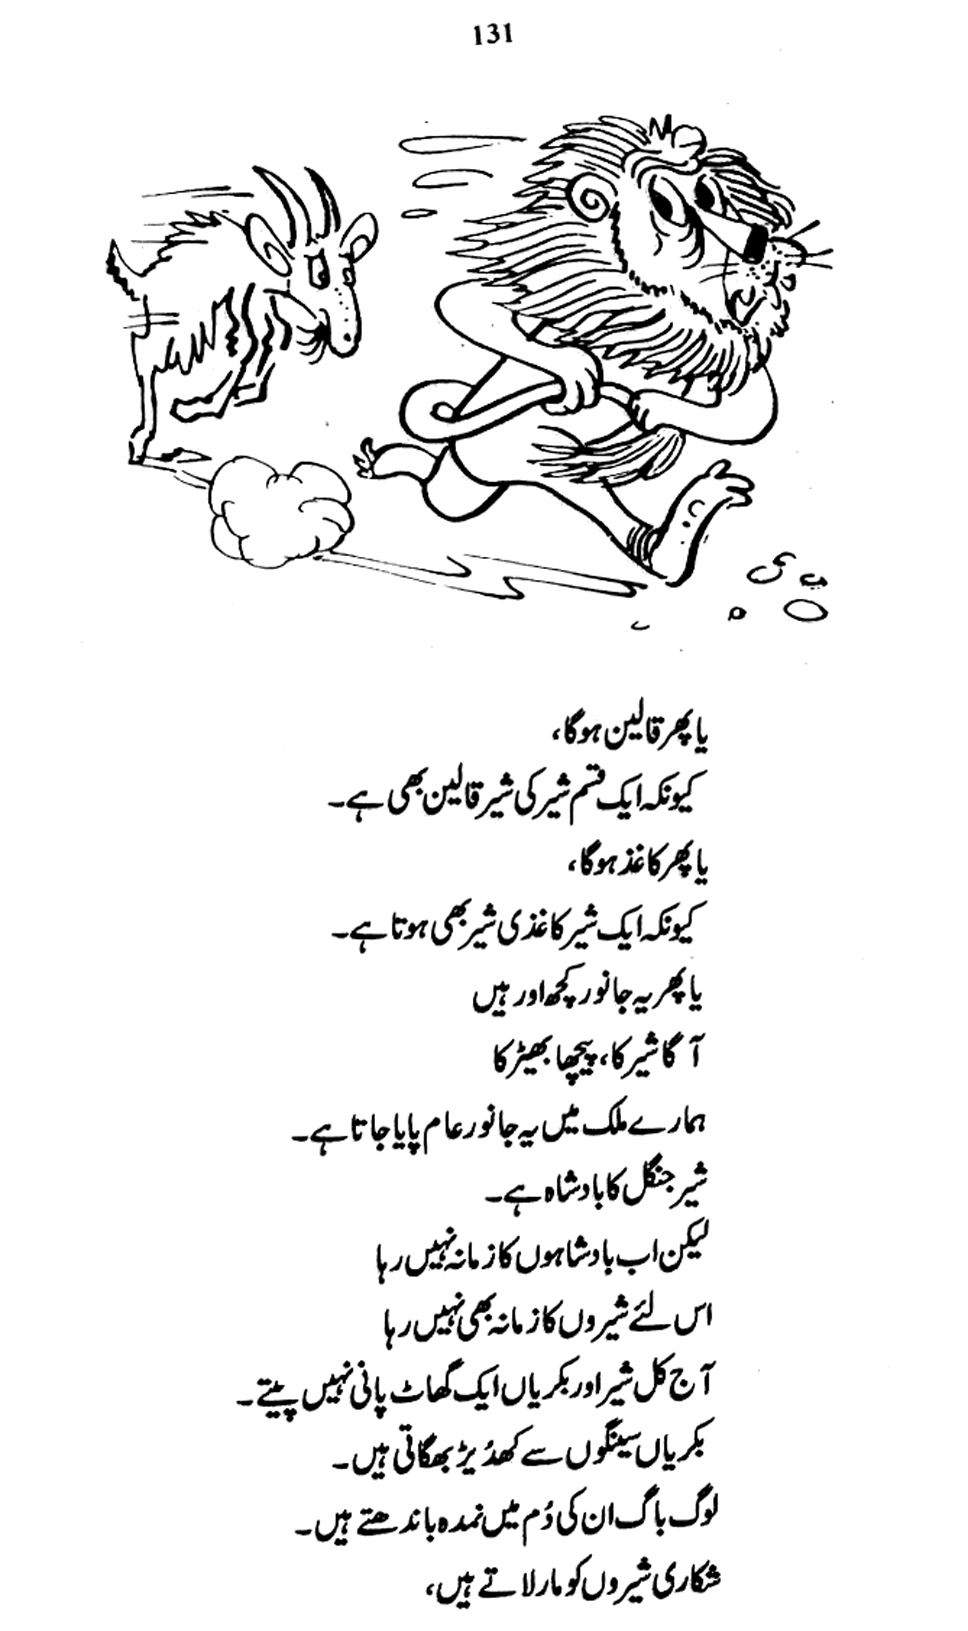 131
یا پھر قالین ہوگا،
کیونکہ ایک قسم شیر کی شیر قالین بھی ہے۔
یا پھر کاغذ ہوگا،
کیونکہ ایک شیر کاغذی شیر بھی ہوتا ہے۔
یا پھر یہ جانور کچھ اور ہیں
آگا شیر کا، پیچھا بھیڑ کا
ہمارے ملک میں یہ جانور عام پایا جاتا ہے۔
شیر جنگل کا بادشاہ ہے۔
لیکن اب بادشاہوں کا زمانہ نہیں رہا
اس لئے شیروں کا زمانہ بھی نہیں رہا
آج کل شیر اور بکریاں ایک گھاٹ پانی نہیں پیتے۔
بکریاں سینگوں سے کھدیڑ بھگاتی ہیں۔
لوگ باگ ان کی دُم میں نمدہ باندھتے ہیں۔
شکاری شیروں کو مار لاتے ہیں،